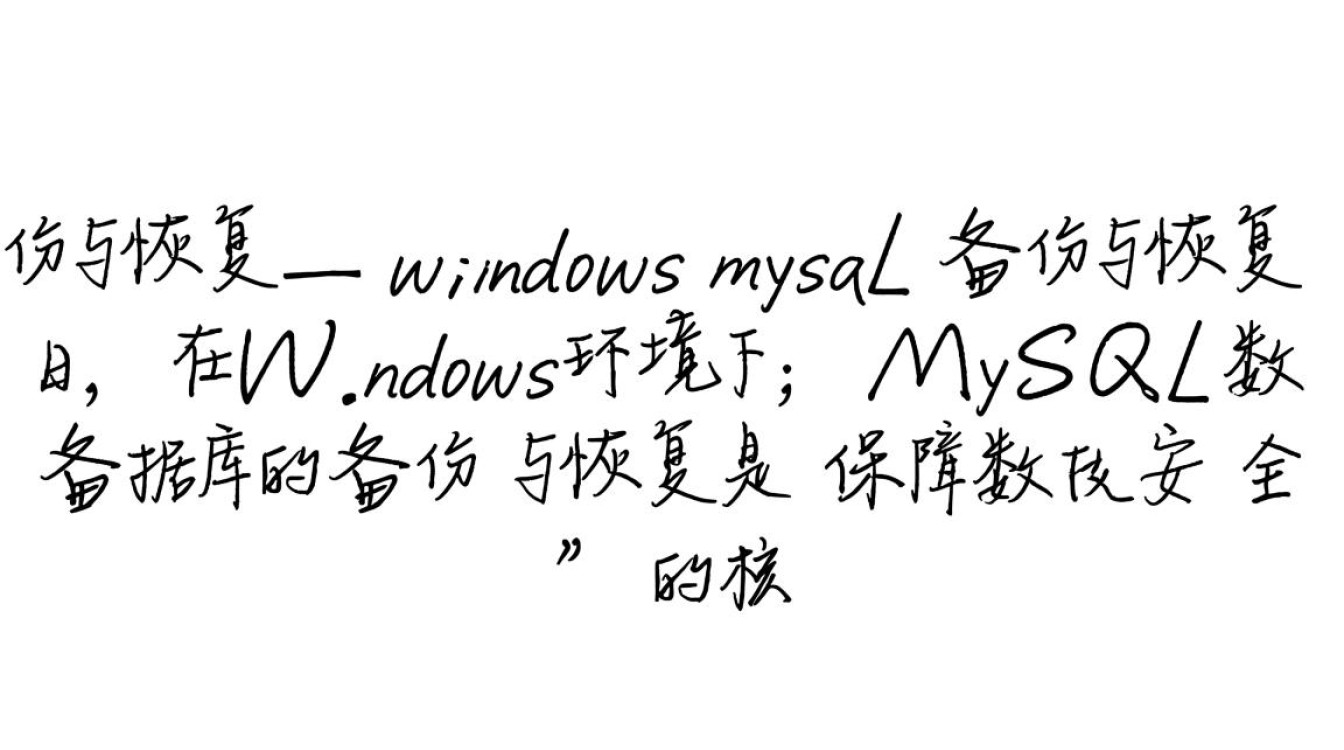 份与恢复— wiindows mysaL 备份与恢复
日， 在W.ndows环境下； MySQL数
备据库的备份 与恢复是 保障数技安 全
” 的核